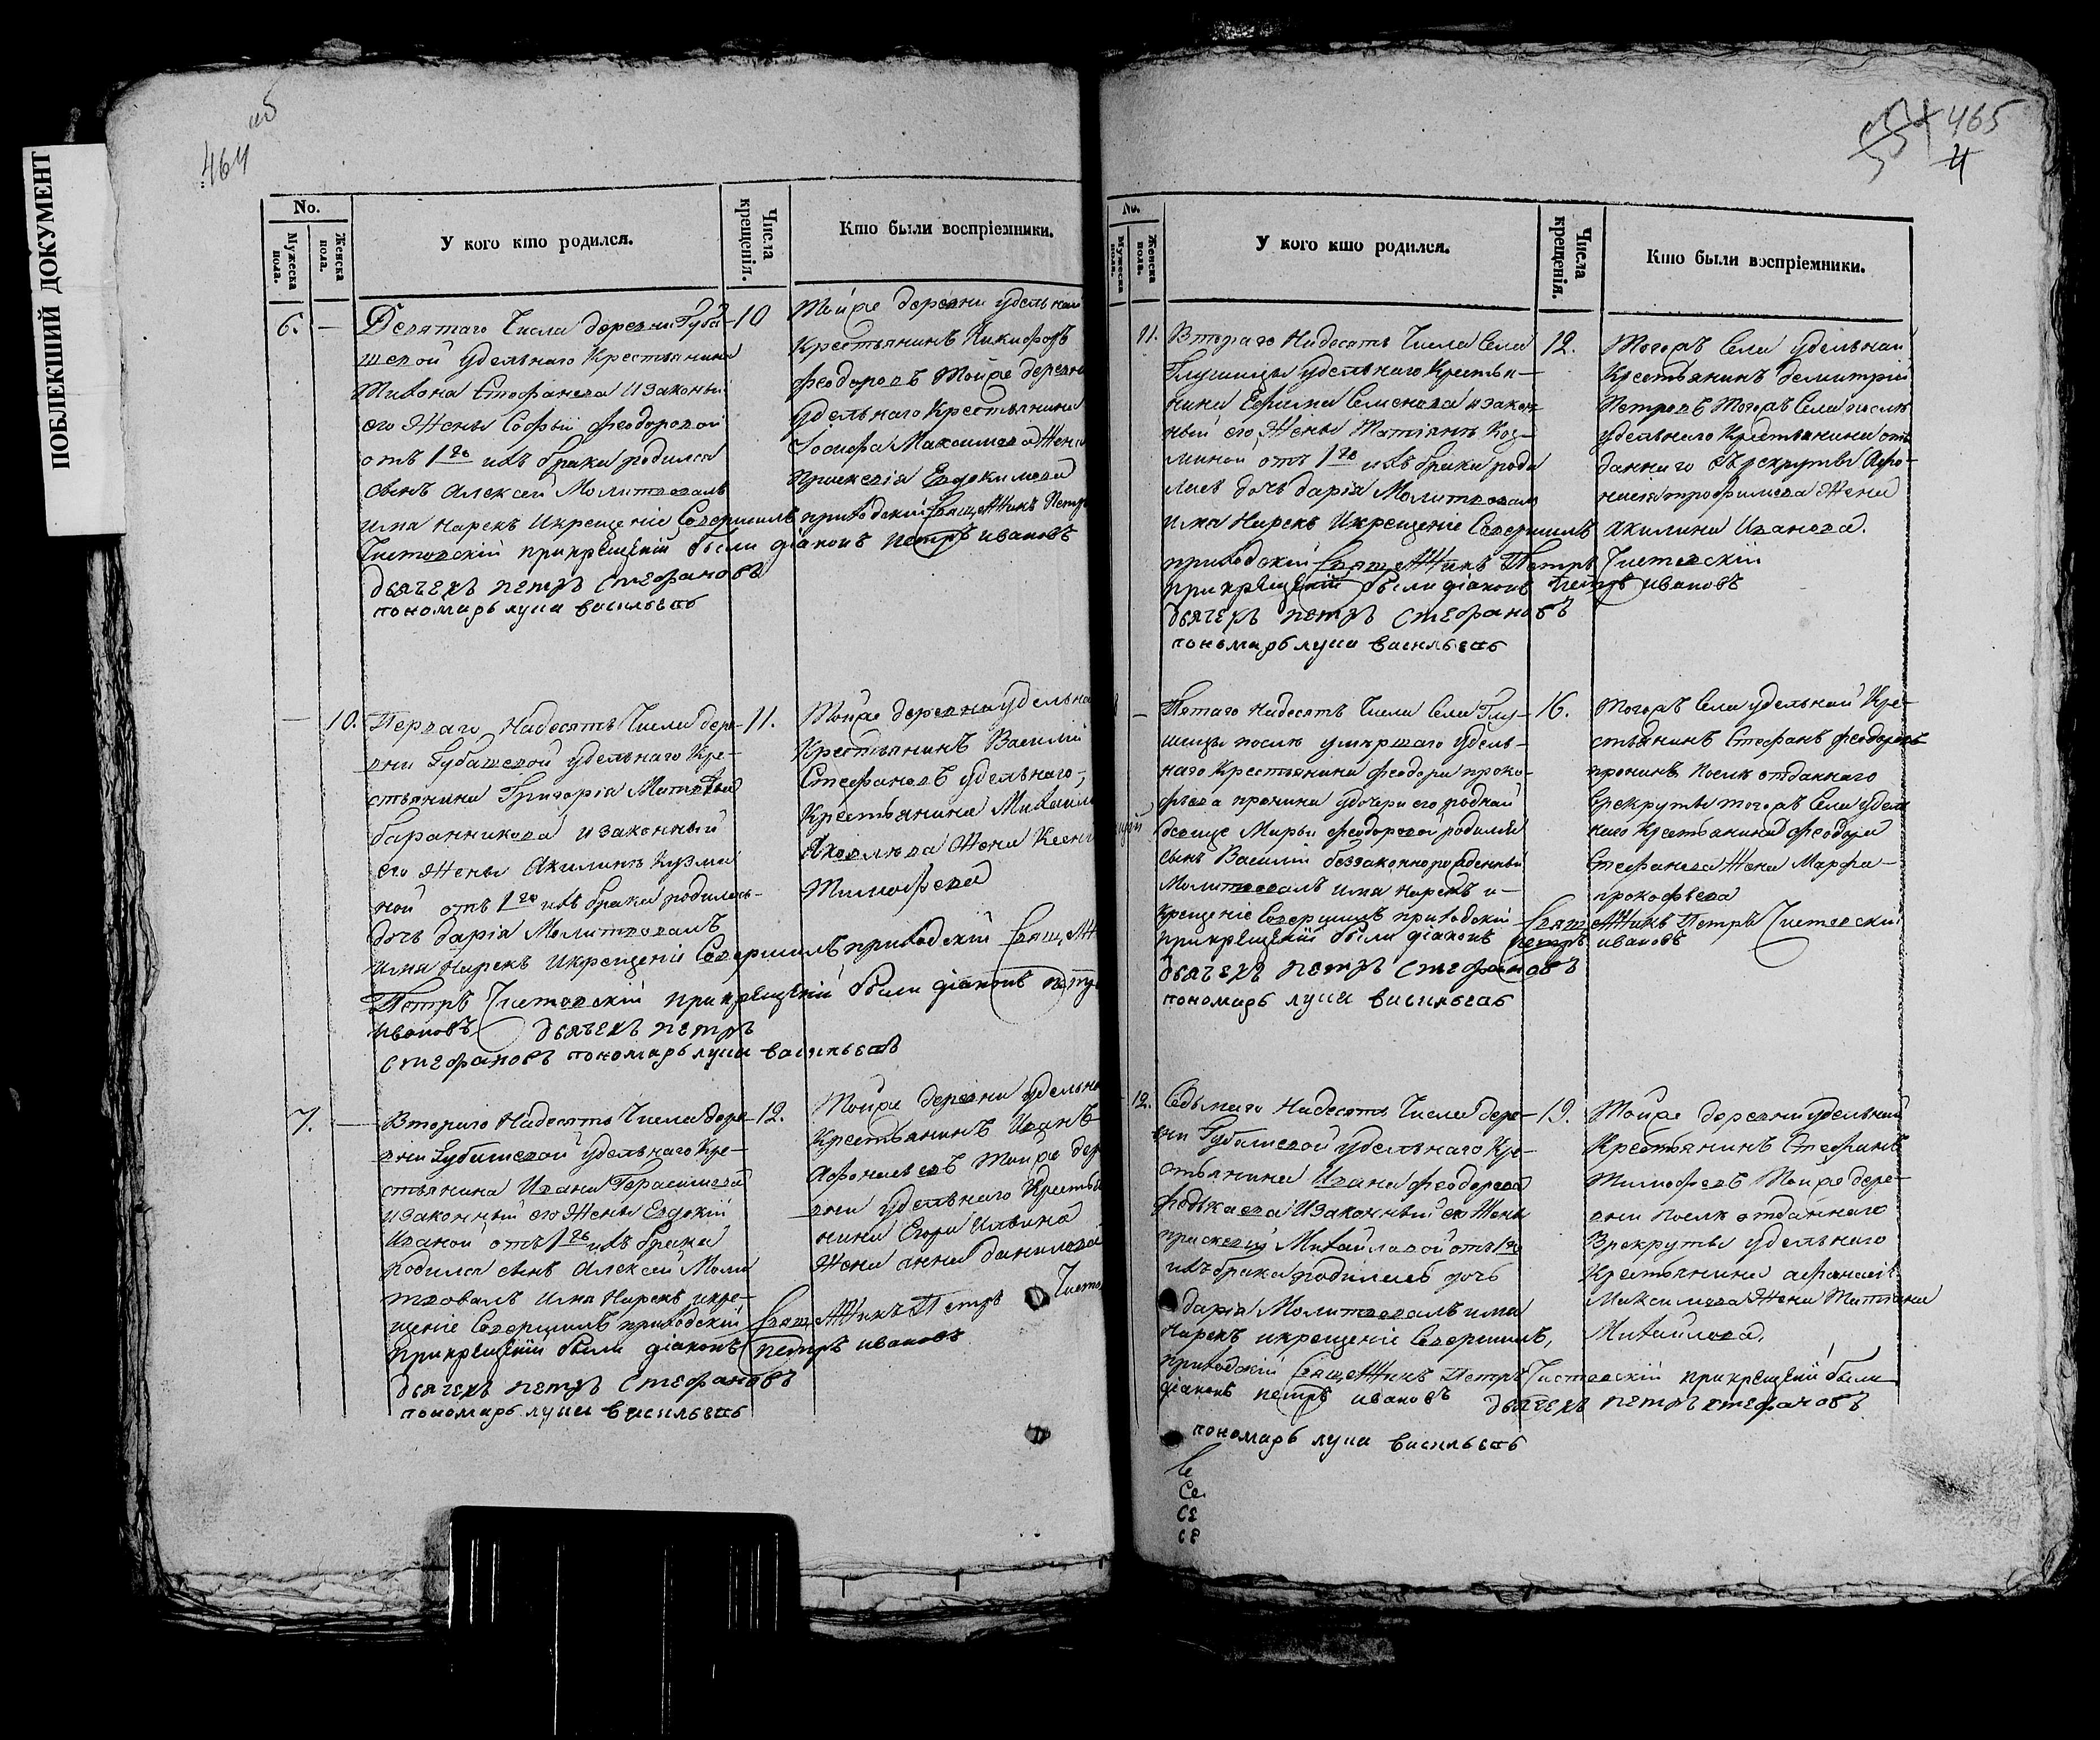 ПОБЛЕКШИЙ ДОКУМЕНТ
464
No.
Мужеска пола.
Женска пола.
У кого кто родился.
Числа крещенія.
Кто были воспріемники.
6. — Девятаго Числа деревни Губа- 10
шевой удельнаго Крестьянина
Тихона Стефанова и законный
его Жены Софьи Феодоровой
отъ 1го ихъ брака родился
сынъ Алексей Молитвовалъ
имя Нарекъ и крещеніе Совершилъ приходскій Священникъ Петръ
Чистовскій при крещеніи были діаконъ петръ ивановъ
дьячекъ петръ стефановъ
пономарь лука васильевъ
Тойже деревни удельный
Крестьянинъ Никифоръ
феодоровъ Тойже деревни
удельнаго Крестьянина
Іосифа Максимова Жена
Евдокимова
— 10. Перваго Надесять Числа дере- 11.
вни Губашевой удельнаго Кре-
стьянина Григорія Матвеева
баранникова и законный
его Жены Акилины Кузми
ной отъ 1го ихъ брака родилась
дочь дарія Молитвовалъ
имя Нарекъ и крещеніе Совершилъ приходскій Свящ
Петръ Чистовскій при крещеніи были діаконъ петръ
ивановъ дьячекъ петръ
стефановъ пономарь лука васильевъ
Тойже деревни удельны
Крестьянинъ Василій
Стефановъ удельнаго
Крестьянина Михаила
Яковлева Жена Ксенія
Тимофеева
7. — Втораго Надесять Числа дере- 12.
вни Губашевой удельнаго Кре-
стьянина Ивана Герасимова
и законный его Жены Евдокіи
Иваной отъ 1го ихъ брака
родился сынъ Алексей Моли
твовалъ имя Нарекъ и кре-
щеніе Совершилъ приходскій Священникъ Петръ Чисто
при крещеніи были діаконъ петръ ивановъ
дьячекъ петръ стефановъ
пономарь лука васильевъ
Тойже деревни удельны
Крестьянинъ Иванъ
Афонасьевъ Тойже дер
вни удельнаго Крестья
нина Егора Ильина
Жена анна данилова
465
4
No.
Мужеска пола.
Женска пола.
У кого кто родился.
Числа крещенія.
Кто были воспріемники.
11. Втораго Надесять Числа Села 12.
Глушицы удельнаго Крестья-
нина Ефима Семенова и закон
ный его Жены Татіаны Коз-
миной отъ 1го ихъ брака роди
лась дочь дарія Молитвовалъ
имя Нарекъ и крещеніе Совершилъ
приходскій Священникъ Петръ Чистовскій
при крещеніи были діаконъ петръ ивановъ
дьячекъ петръ стефановъ
пономарь лука васильевъ
Тогожъ Села удельный
Крестьянинъ Демитрій
Петровъ Тогожъ Села после
удельнаго Крестьянина от
даннаго въ рекруты Афо-
насія трофимова Жена
акилина Иванова.
— Пятаго Надесять Числа Села Глу- 16.
шицы после умершаго удель-
наго Крестьянина феодора проко-
фьева пронина у дочери его родной
девице Марьи Феодоровой родился
сынъ Василій беззаконнорожденный
Молитвовалъ имя нарекъ и
крещеніе Совершилъ приходскій Священникъ Петръ Чистовскій
при крещеніи были діаконъ петръ ивановъ
дьячекъ петръ стефановъ
пономарь лука васильевъ
Тогожъ Села удельный Кре-
стьянинъ Стефанъ феодоровъ
пронинъ после отданнаго
в рекруты тогожъ Села удель
наго Крестьянина феодора
Стефанова Жена Марфа
прокофьева
12. Седьмаго Надесять Числа дере- 19.
вни Губашевой удельнаго Кре-
стьянина Ивана Феодорова
и законный его Жены
Михайловой отъ 1го
ихъ брака родилась дочь
дарія Молитвовалъ имя
Нарекъ и крещеніе Совершилъ,
приходскій Священникъ Петръ Чистовскій при крещеніи были
діаконъ петръ ивановъ дьячекъ петръ стефановъ
пономарь лука васильевъ
Тойже деревни удельный
Крестьянинъ Стефанъ
Тимофеевъ Тойже дере-
вни после отданнаго
В рекруты удельнаго
Крестьянина афанасія
Максимова Жена Татіана
Михайлова.
Се
Се
се